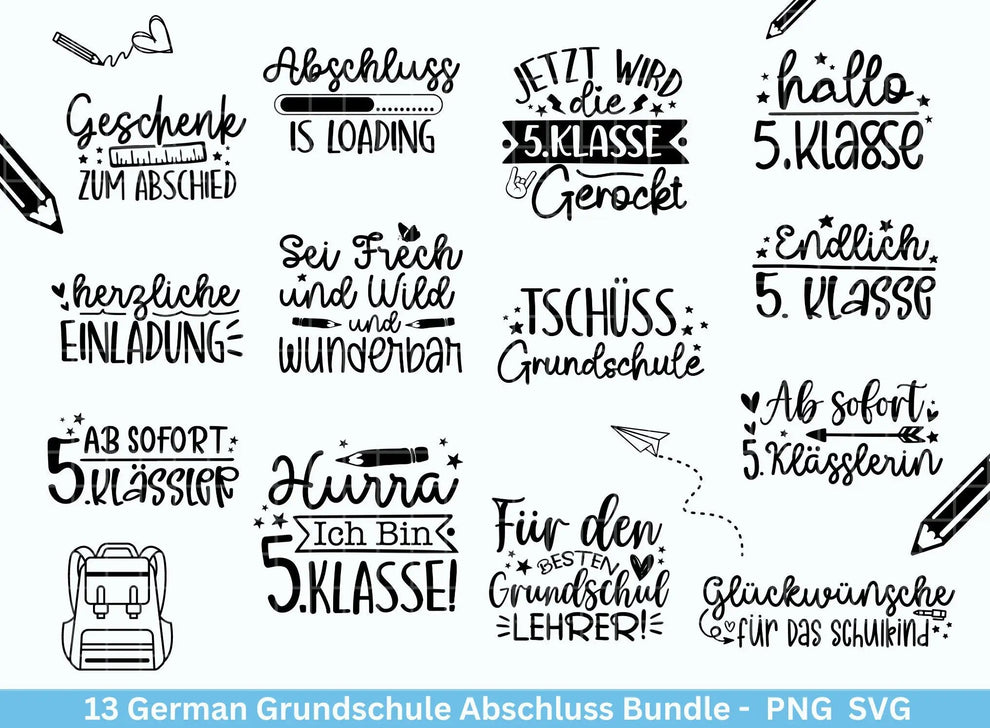 Geschenk
ZUM ABSCHIED
Abschluss
IS LOADING
JETZT WIRD
die
5.KLASSE
Gerockt
hallo
5.Klasse
herzliche
EINLADUNG
Sei Frech
und Wild
und
wunderbar
TSCHÜSS
Grundschule
Endlich
5. Klasse
AB SOFORT
5.KLÄSSLER
Hurra
Ich Bin
5.KLASSE!
Für den
BESTEN
Grundschul
LEHRER!
Ab sofort
5.Klässlerin
Glückwünsche
für das schulkind
13 German Grundschule Abschluss Bundle - PNG SVG